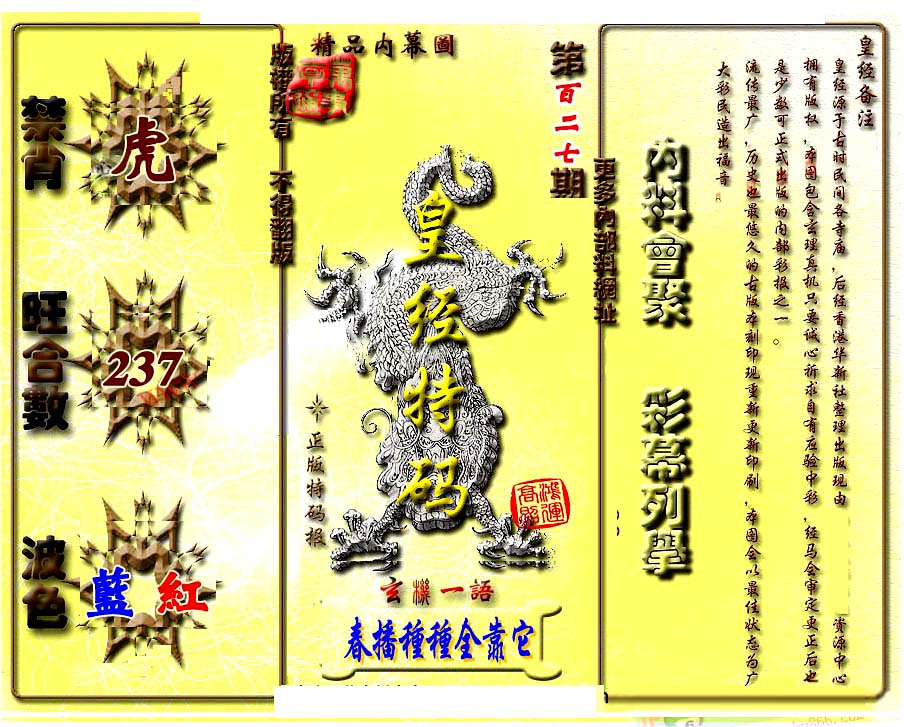 皇经备注
皇经源于古时民间各寺庙，后经香港华新社整理出版现由 资源中心
拥有版权，本图包含玄理真机只要诚心祈求自有应验中彩，经马会审定更正后也
是少数可正式出版的内部彩报之一。
流传最广，历史也最悠久的古版本刻印现重新更新印刷，本图会以最佳状态为广
大彩民造出福音
內料會聚 彩幕列學
更多內部料網址
第百二七期
精品内幕圖
皇经特码
正版特码报
鴻運高照
玄機一語
春播種種全靠它
版權所有 不得翻版
禁肖
虎
旺合數
237
波色
藍 紅